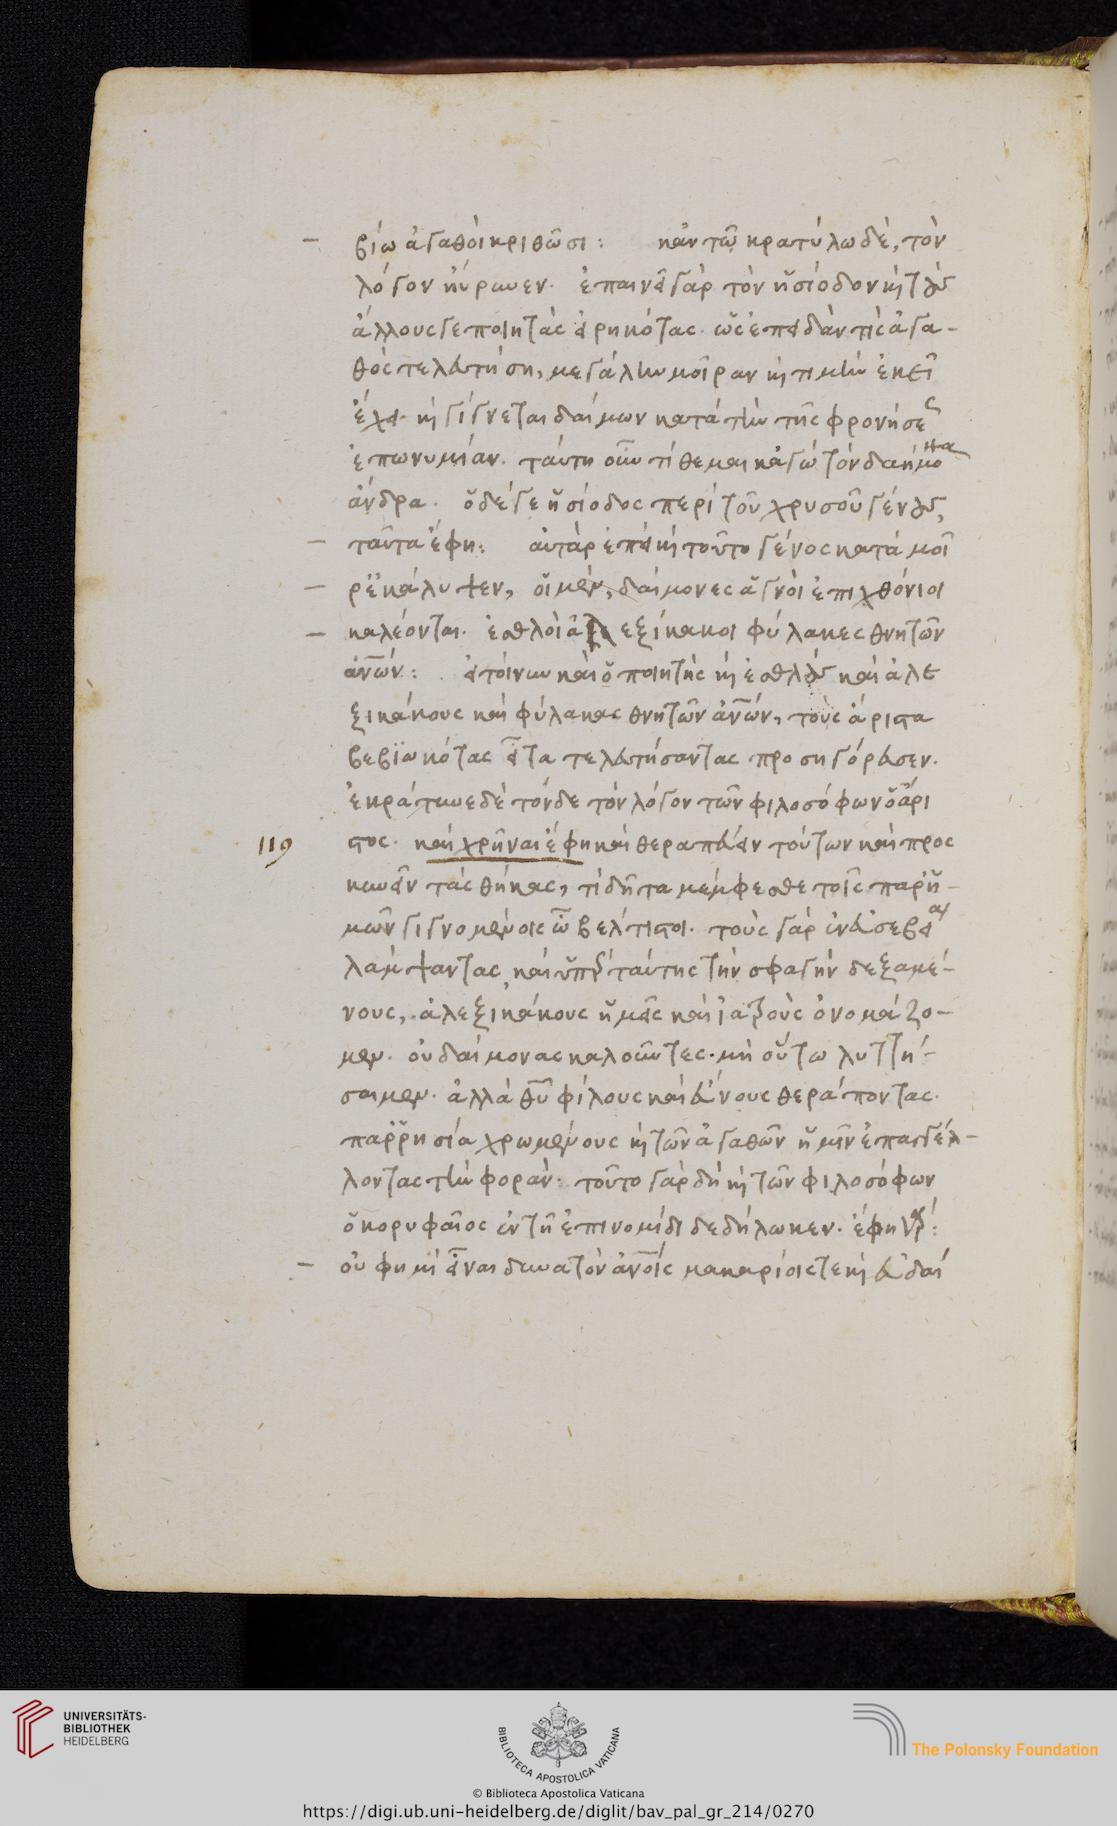 βίω ἀγαθοὶ κριθῶσι: κἂν τῷ κρατύλω δὲ, τὸν
λόγον ηὕραμεν. ἐπαινεῖ γὰρ τὸν ἡσίοδον καὶ τοὺς
ἄλλους γε ποιητὰς εἰρηκότας. ὡς ἐπειδάν τις ἀγα-
θὸς τελευτήση, μεγάλην μοῖραν καὶ τιμὴν ἐκεῖ
ἔχει. καὶ γίγνεται δαίμων κατὰ τὴν τῆς φρονήσεως
ἐπωνυμίαν. ταύτη οὖν τίθεμαι κἀγὼ τὸν δαήμονα
ἄνδρα. ὁ δέ γε ἡσίοδος περὶ τοῦ χρυσοῦ γένους,
ταῦτα ἔφη: αὐτὰρ ἐπεὶ καὶ τοῦτο γένος κατὰ μοῖ
ρ ἐκάλυψεν, οἱ μὲν, δαίμονες ἁγνοὶ ἐπιχθόνιοι
καλέονται. ἐσθλοὶ ἀλεξίκακοι φύλακες θνητῶν
ἀνῶν: εἰ τοίνυν καὶ ὁ ποιητὴς καὶ ἐσθλοὺς καὶ ἀλε
ξικάκους καὶ φύλακας θνητῶν ἀνῶν, τοὺς ἄριστα
βεβϊωκότας εἶτα τελευτήσαντας προσηγόρευσεν.
ἐκράτυνε δὲ τόνδε τὸν λόγον τῶν φιλοσόφων ὁ ἄρι
119 στος. καὶ χρῆναι ἔφη καὶ θεραπεύειν τούτων καὶ προς
κυνεῖν τὰς θήκας, τί δῆτα μέμφεσθε τοῖς παρ ἡ-
μῶν γιγνομένοις ὦ βέλτιστοι. τοὺς γὰρ ἐν εὐσεβείαι
λάμψαντας, καὶ ὑπὲρ ταύτης τὴν σφαγὴν δεξαμέ-
νους, ἀλεξικάκους ἡμεῖς καὶ ἰατροὺς ὀνομάζο-
μεν. οὐ δαίμονας καλοῦντες. μὴ οὕτω λυττή-
σαιμεν. ἀλλὰ θυ φίλους καὶ εὔνους θεράποντας.
παῤῥησία χρωμένους καὶ τῶν ἀγαθῶν ἡμῖν ἐπαγγέλ-
λοντας τὴν φοράν: τοῦτο γὰρ δὴ καὶ τῶν φιλοσόφων
ὁ κορυφαῖος ἐν τῇ ἐπινομίδι δεδήλωκεν. ἔφη γάρ:
οὐ φημὶ εἶναι δυνατὸν ἀνοίς μακαρίοις τε καὶ εὐδαί
UNIVERSITÄTS-
BIBLIOTHEK
HEIDELBERG
BIBLIOTECA APOSTOLICA VATICANA
The Polonsky Foundation
© Biblioteca Apostolica Vaticana
https://digi.ub.uni-heidelberg.de/diglit/bav_pal_gr_214/0270